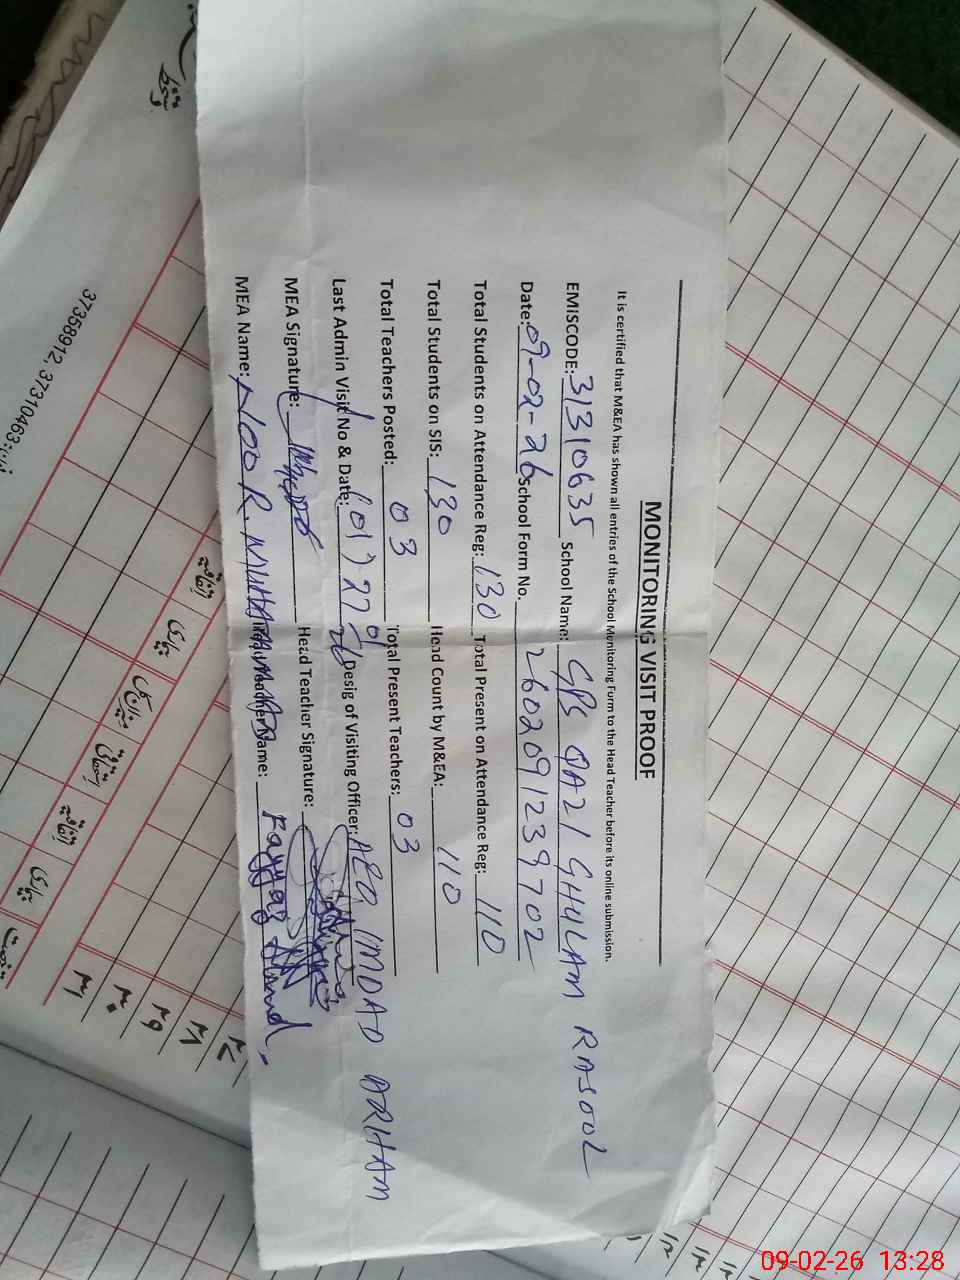 MONITORING VISIT PROOF
It is certified that M&EA has shown all entries of the School Monitoring Form to the Head Teacher before its online submission.
EMISCODE: 31310635 School Name: GPS QAZI GHULAM RASOOL
Date: 09-02-26 School Form No. 2602091239702
Total Students on Attendance Reg: 130 Total Present on Attendance Reg: 110
Total Students on SIS: 130 Head Count by M&EA: 110
Total Teachers Posted: 03 Total Present Teachers: 03
Last Admin Visit No & Date: (01) 27 01 26 Desig of Visiting Officer: AEO IMDAD ARHAM
MEA Signature: Head Teacher Signature:
MEA Name: NOOR MUHAMMAD Name: Fayyaz Ahmad
37358912, 37310463
09-02-26 13:28